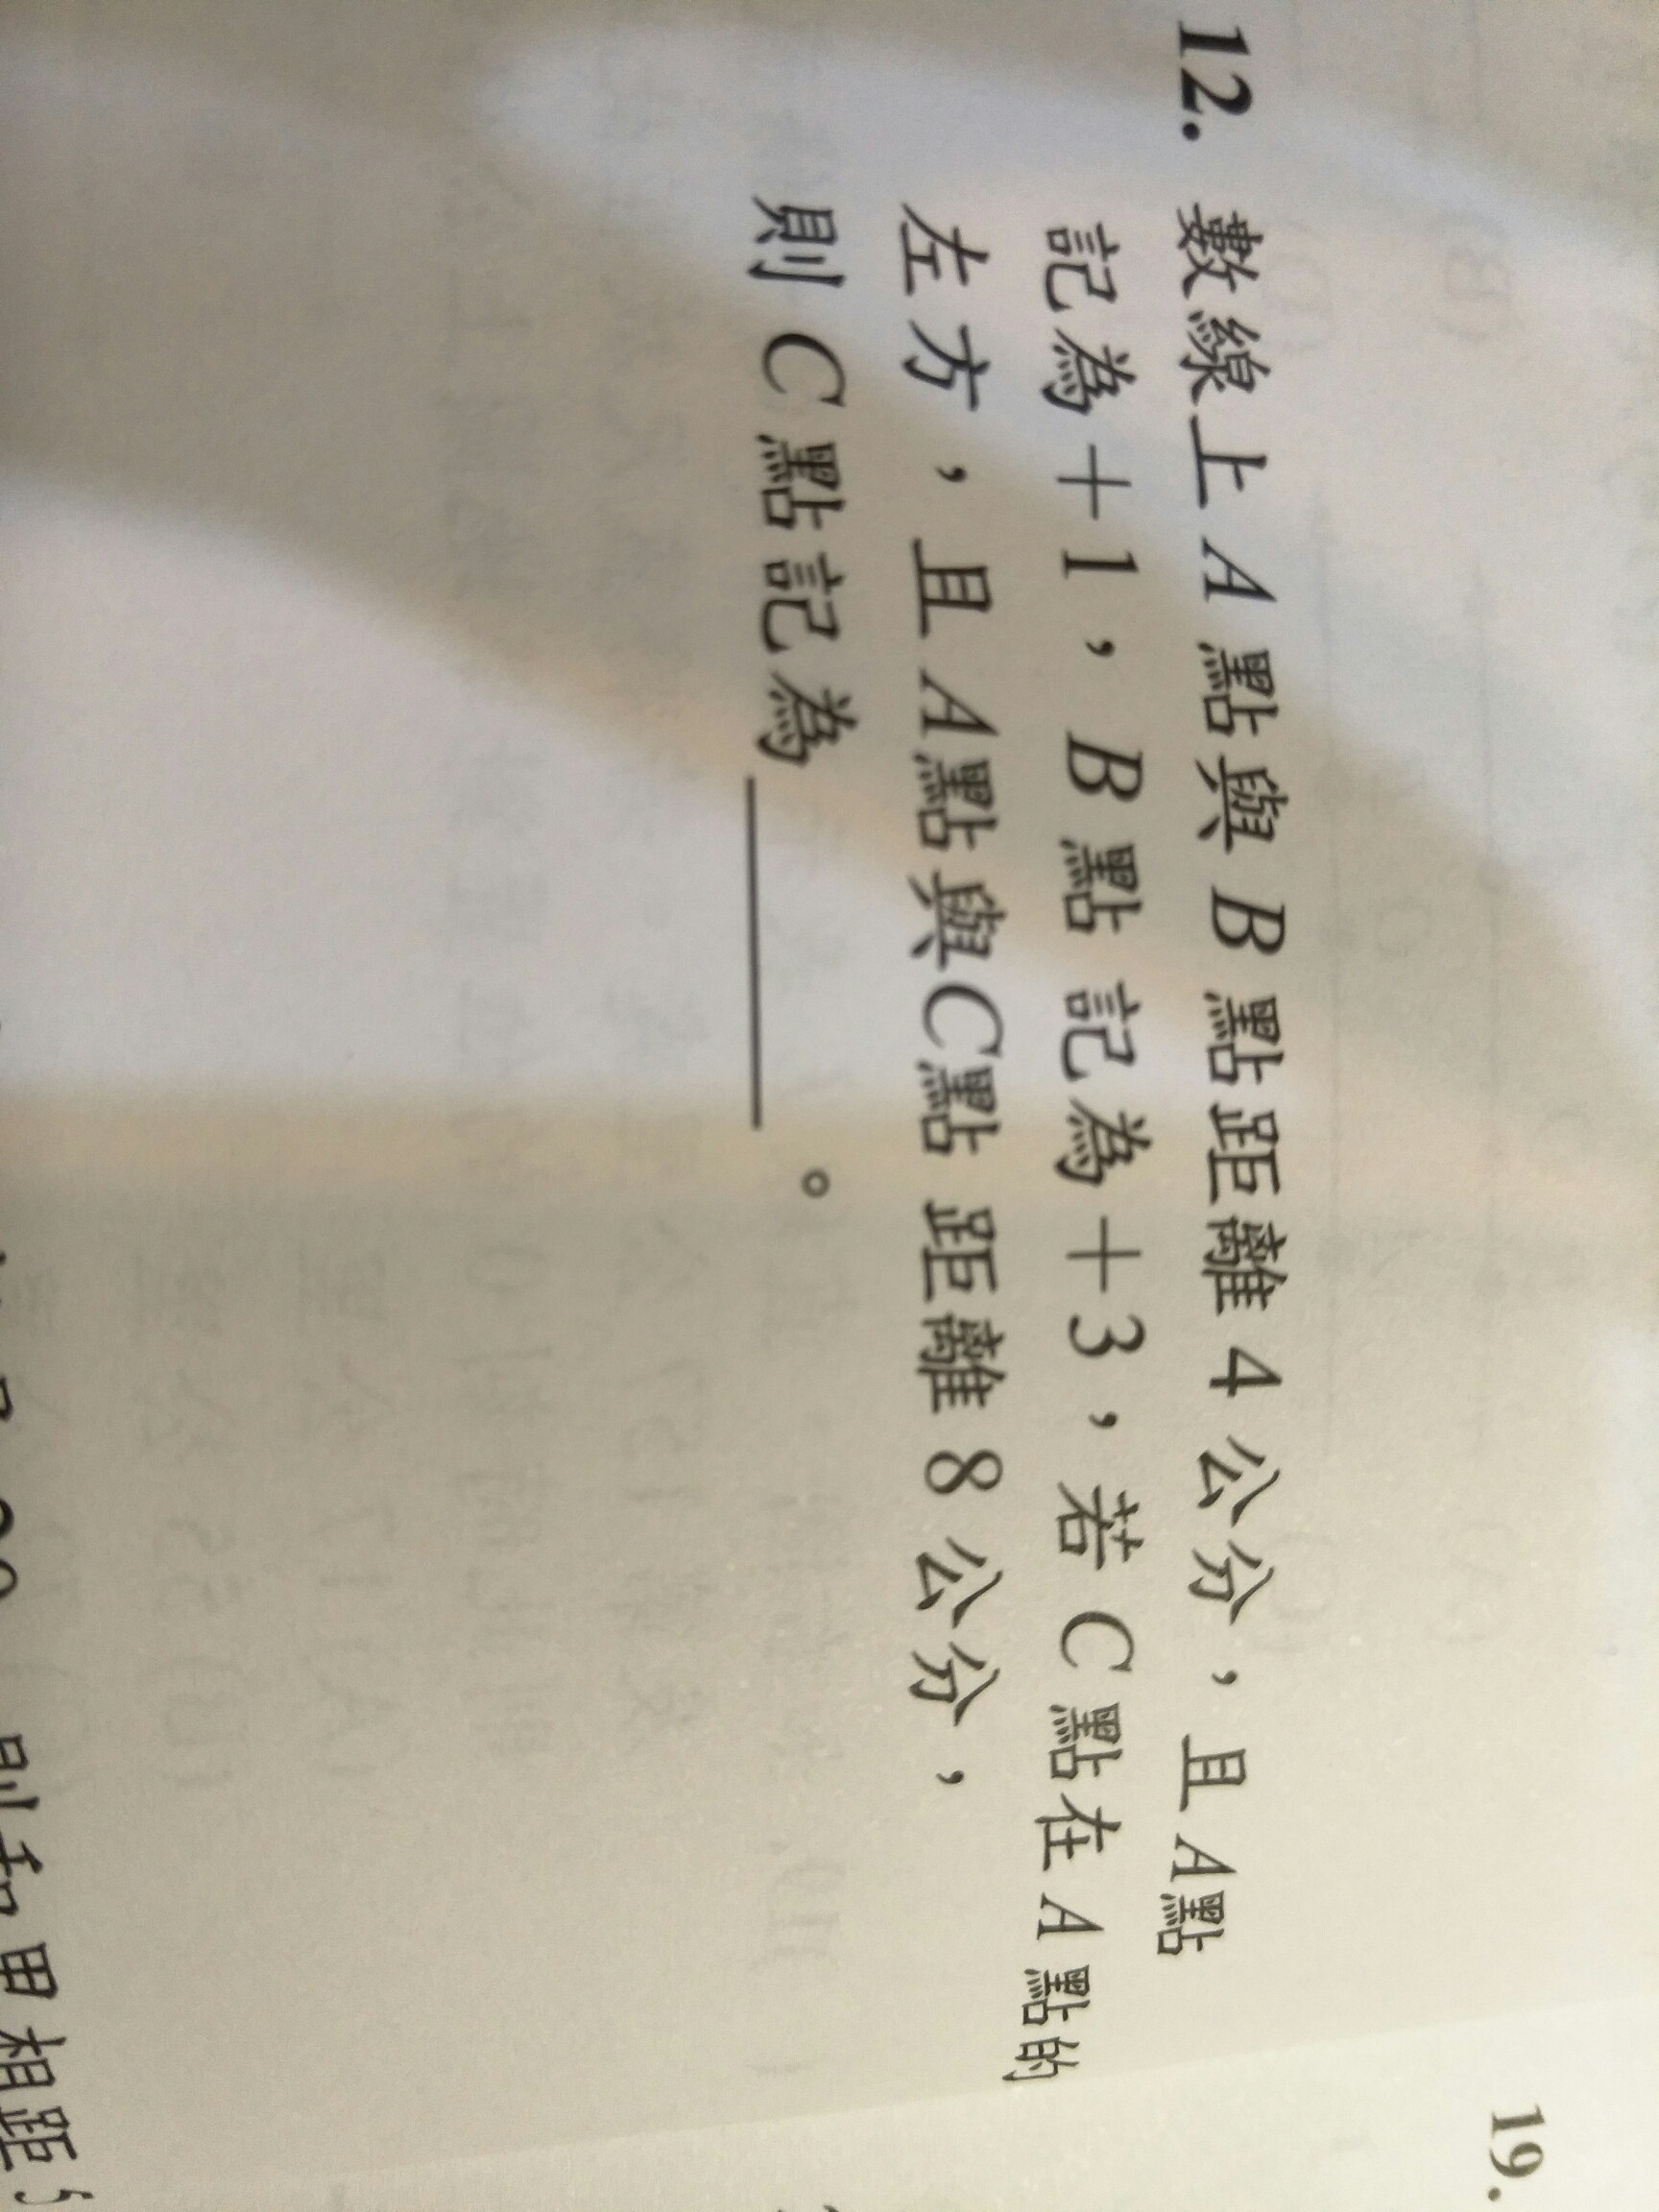 12. 數線上 A 點與 B 點距離 4 公分，且 A 點
記為＋1，B 點記為＋3，若 C 點在 A 點的
左方，且 A 點與 C 點距離 8 公分，
則 C 點記為＿＿＿＿。
19.